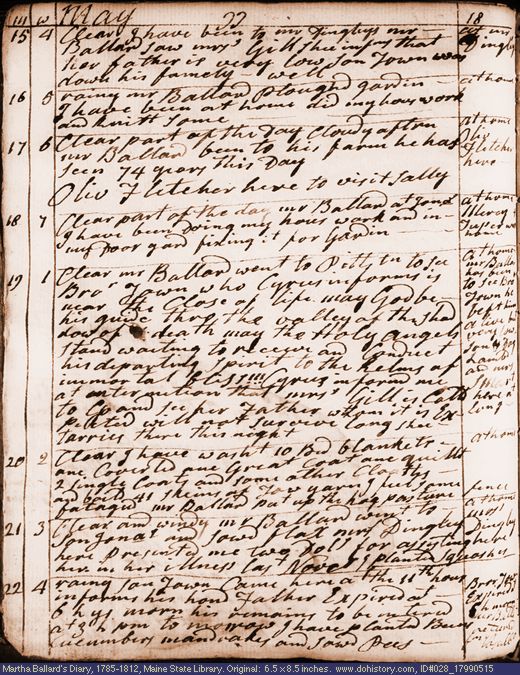 m w May 22 18
15 4 Clear I have been to mr Dinglys mr at mr
Ballard Saw mrs Gill Shee informs that Dinglys
her Father is very low Son Town was
down his famely - well
16 5 raing mr Ballard Ploughd gardin at home
I have been at home did my hous work
and knitt Some
17 6 Clear part of the Day Cloudy aftern at home
mr Ballard been to his farm he has Fletcher
Seen 74 years this Day here
Oliv Fletcher here to visit Sally
18 7 Clear part of the day mr Ballard at home
I have been Doing my hous work and in
my Door yard fixing it for Gardin
19 1 Clear mr Ballard went to Pittstn to See at home
Bror Town who Cyrus informs is mr Ballard
near the Close of life may God be has been
his guide thro the valley of the Shad to See Bror
dow of death may the Holy Angels Town he
Stand waiting to receiv and Conduct
his departing Spirit to the helms of
immorta bliss!!!! Cyrus informd me
at my return that mrs Gill is Calld
to Go and See her Father whom it is Ex
pected will not Survive long Shee
tarries there this night
20 2 Clear I have washt 10 Bed blankets at home
one Coverlid one Great Coat one quillt
2 Single Coats and Some other Cloaths
and boild 41 Skeins of Tow yarn I feel Some
fatagud mr Ballard put up the hog pasture
21 3 Clear and windy mr Ballard went to at home
Son Jonas and Sowd flax mrs Dingley mrs Dingley
here Presented me two Dols for assisting here
her in her illness last Novr I planted Squashes
22 4 raing Son Town Came here at the 11th hour Bror Town
informs his hond Father Expired at Expired
6 hys morn his remains to be intered
at 3 h pm to morrow I have planted Beens
Cucumbers mandrakes and Sowd Pees
Martha Ballard's Diary, 1785-1812, Maine State Library. Original: 6.5 x 8.5 inches. www.dohistory.com, ID#028_17990515